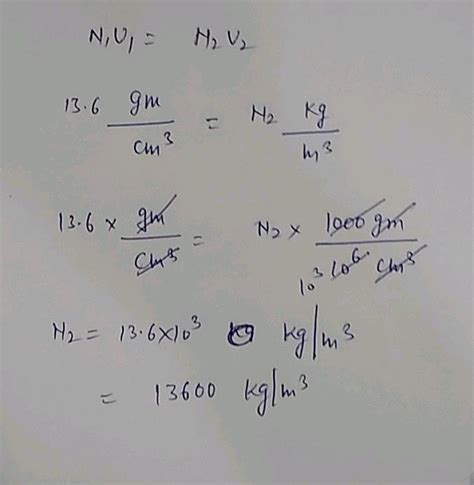 N₁U₁ = N₂U₂
13.6 gm/cm³ = N₂ kg/m³
13.6 × gm/cm³ = N₂ × 1000 gm/10³ 10⁶ cm³
N₂ = 13.6×10³ kg kg/m³
= 13600 kg/m³